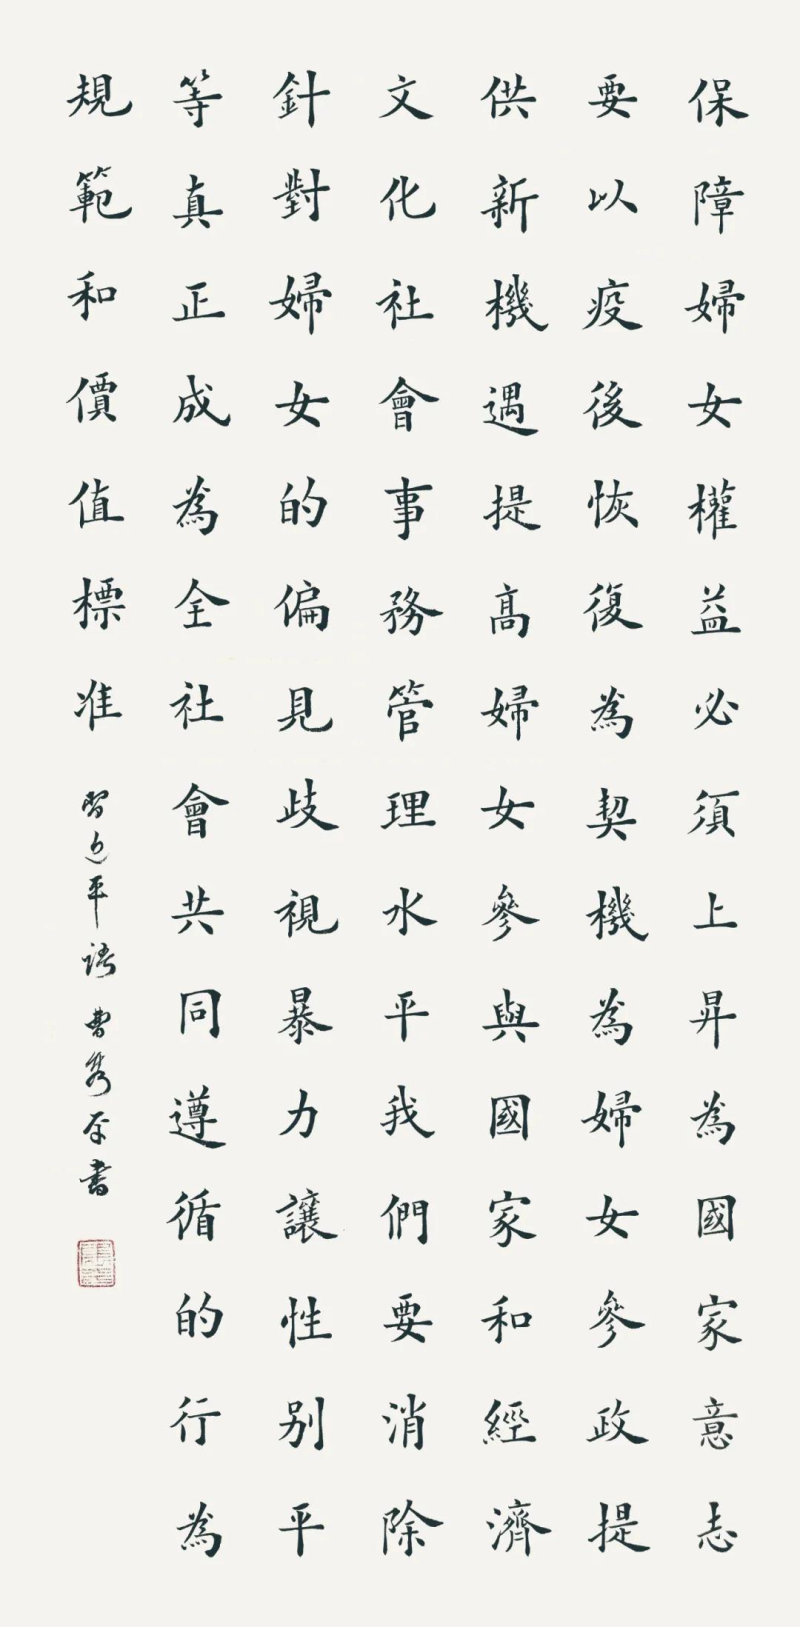 保障婦女權益必須上昇為國家意志
要以疫後恢復為契機為婦女參政提
供新機遇提高婦女參與國家和經濟
文化社會事務管理水平我們要消除
針對婦女的偏見歧視暴力讓性別平
等真正成為全社會共同遵循的行為
規範和價值標准
習近平語 曹秀平書